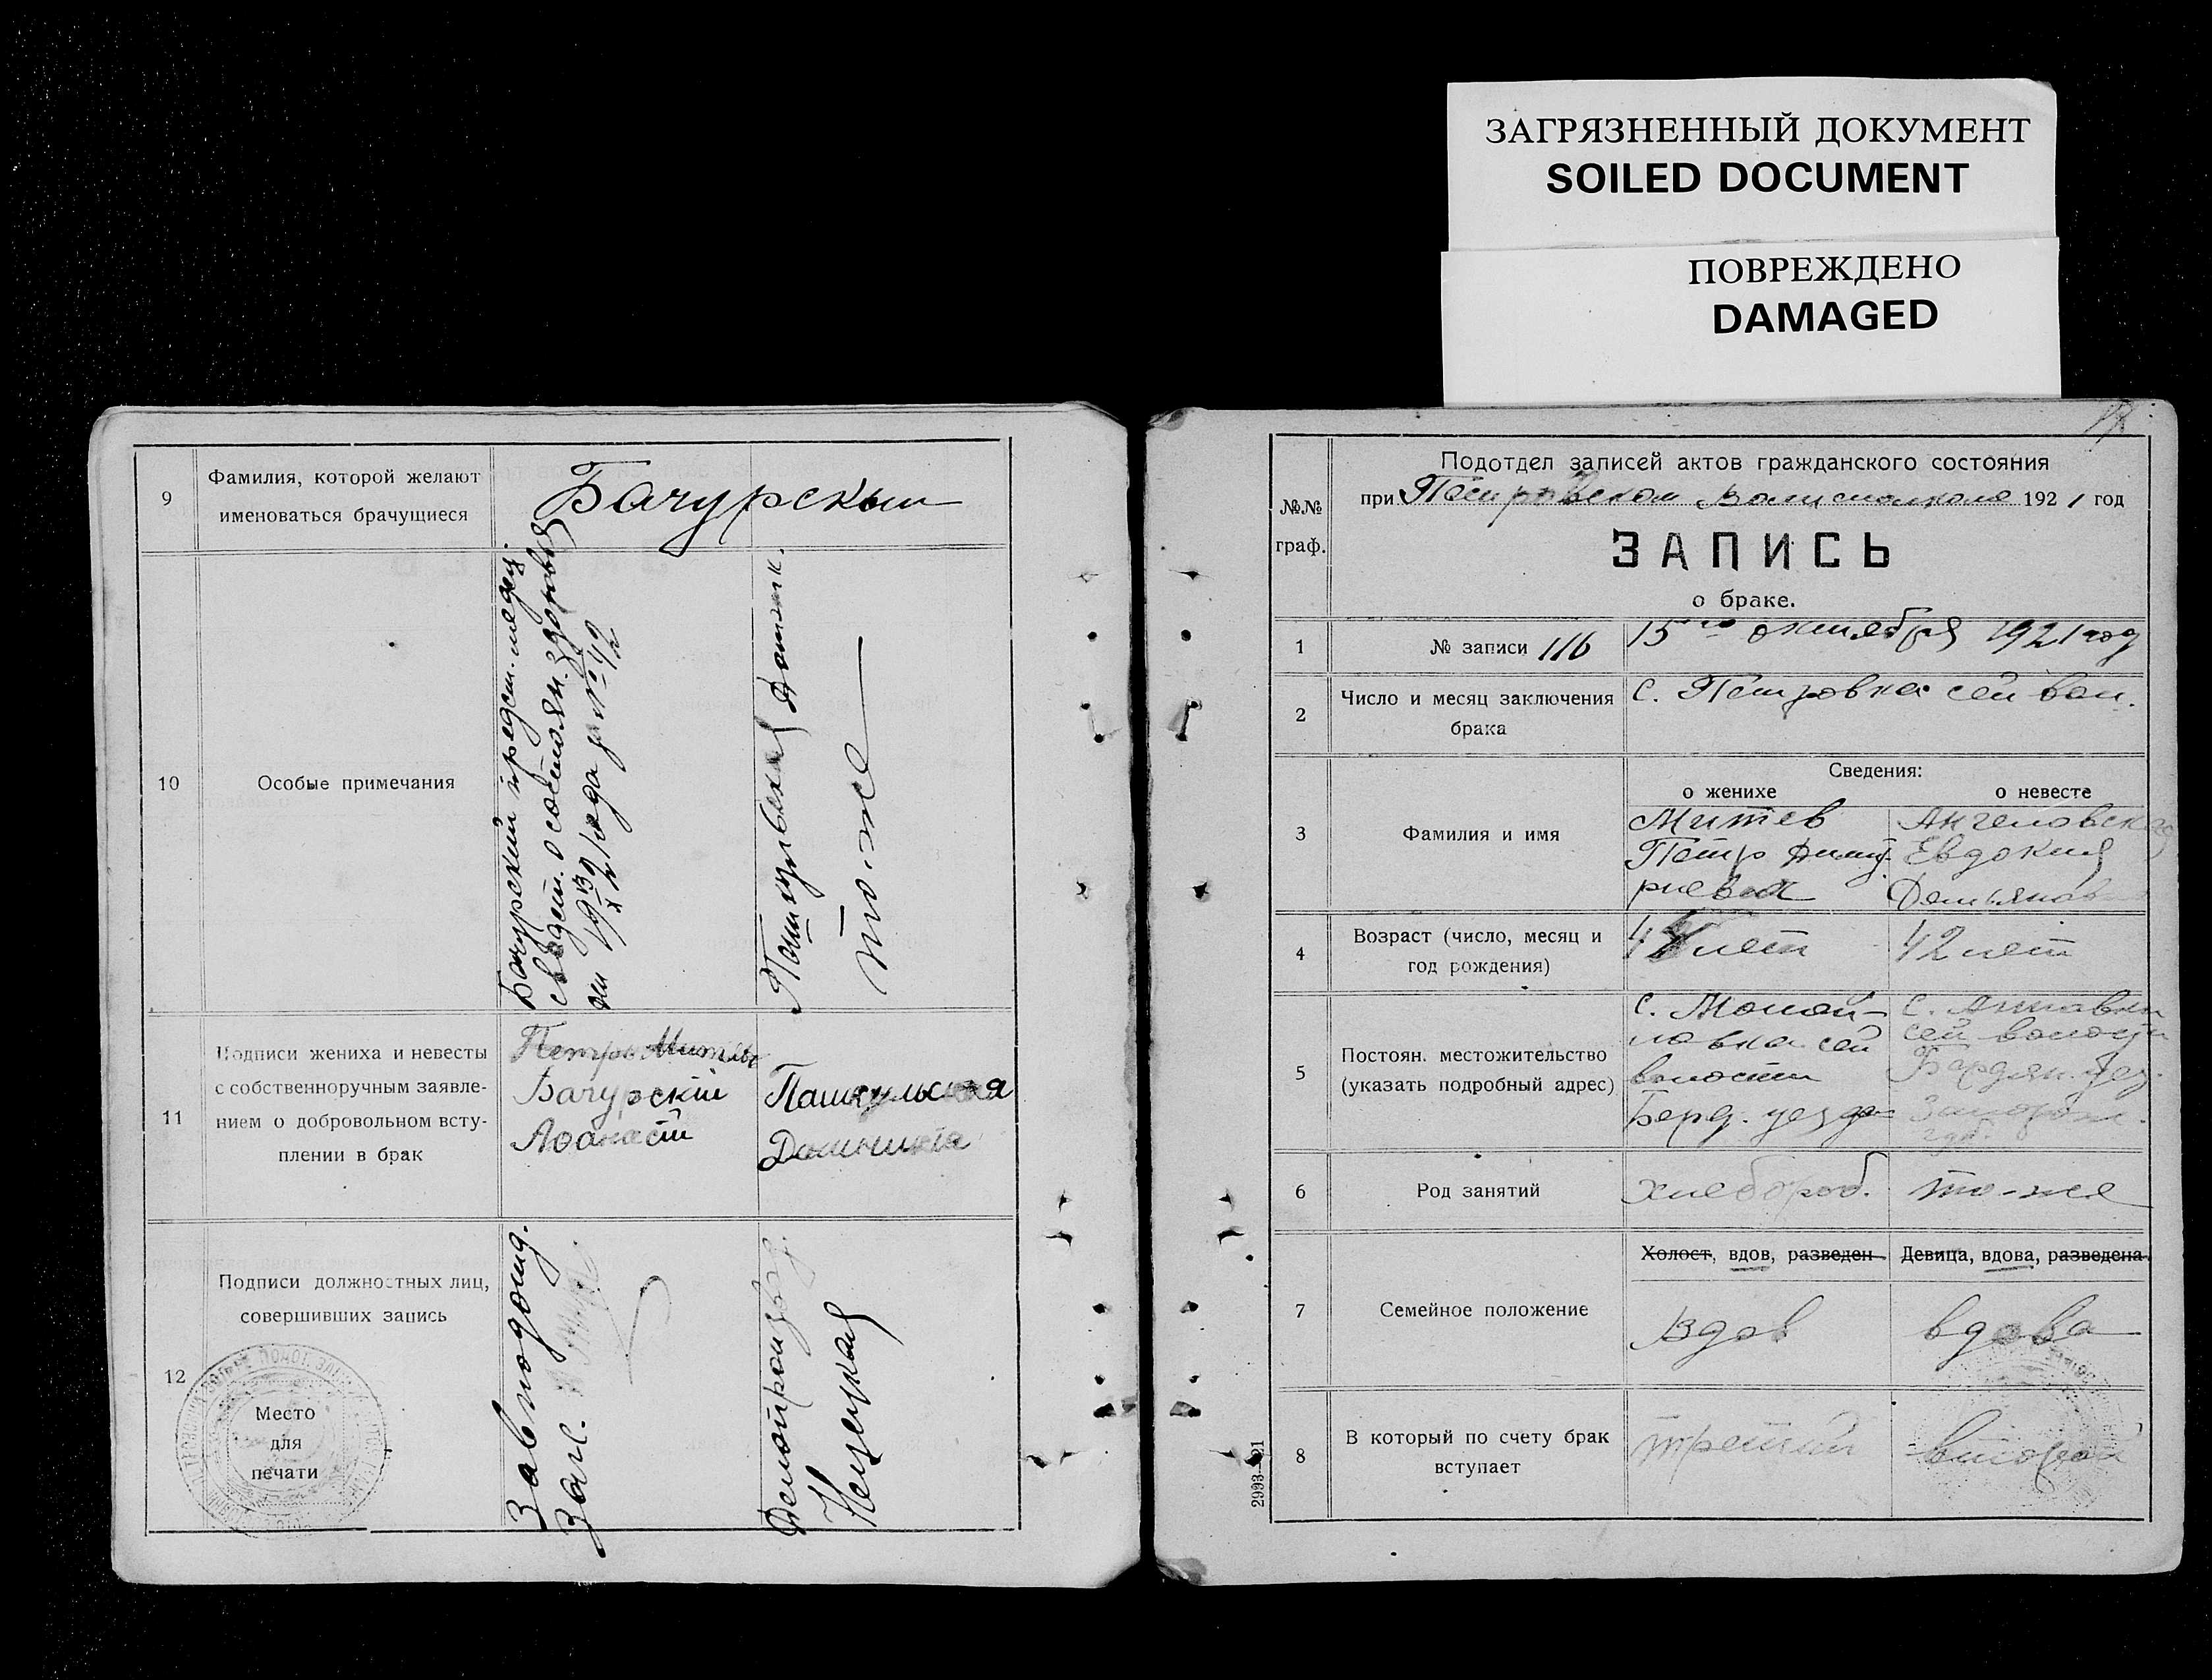 ЗАГРЯЗНЕННЫЙ ДОКУМЕНТ
SOILED DOCUMENT
ПОВРЕЖДЕНО
DAMAGED
9
Фамилия, которой желают
именоваться брачущиеся
Бачурский
10
Особые примечания
Бачурский предст. медец.
свидет. о состоян. здоровья
от 19 13/X 21 года
Дотик.
то-же
11
Подписи жениха и невесты
с собственноручным заявле-
нием о добровольном всту-
плении в брак
Петро Митев
Бачурскій
Афанасій
Пашкульская
12
Подписи должностных лиц,
совершивших запись
Место
для
печати
Зав подотд.
Загс.
Делопроизвод.
Нецецкая
№№
граф.
Подотдел записей актов гражданского состояния
при Петровском Волисполкоме 1921 год
ЗАПИСЬ
о браке.
1
№ записи 116
15го октября 1921 год
2
Число и месяц заключения
брака
с. Петровка сей вол.
3
Фамилия и имя
Сведения:
о женихе
о невесте
Митев
Петр Димит
риевич
Ангеловская
Евдокия
Демьяновна
4
Возраст (число, месяц и
год рождения)
лет
42 лет
5
Постоян. местожительство
(указать подробный адрес)
с. Молой-
ловка сей
волости
Берд. уезда
с.
сей волости
Бердян. уез.
Запорож.
губ.
6
Род занятий
хлебороб.
то-же
7
Семейное положение
Холост, вдов, разведен
Девица, вдова, разведена
Вдов
вдова
8
В который по счету брак
вступает
третий
второй
2993—21